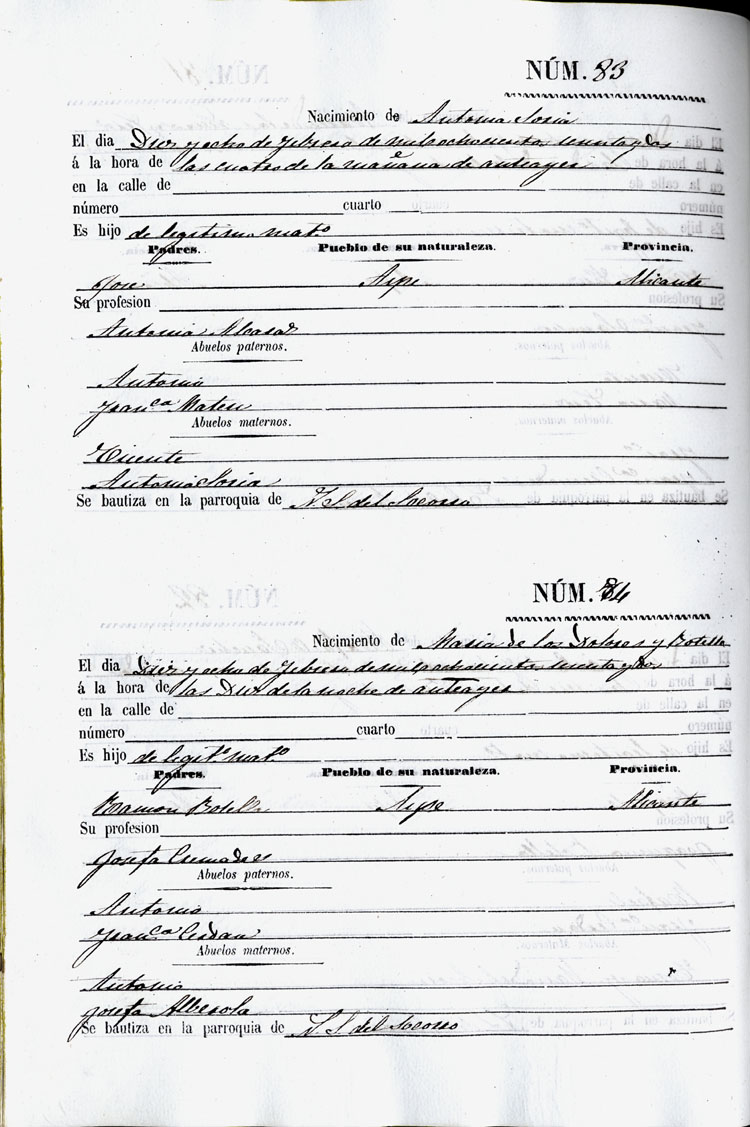 NÚM. 83
Nacimiento de Antonia Soria
El dia Diez y ocho de Febrero de mil ochocientos setenta y dos
á la hora de las cuatro de la mañana de anteayer
en la calle de
número cuarto
Es hijo de legitimo matº
Padres. Pueblo de su naturaleza. Provincia.
Jose Aspe Alicante
Su profesion
Antonia Alcaraz
Abuelos paternos.
Antonio
Franca Mateu
Abuelos maternos.
Vicente
Antonia Soria
Se bautiza en la parroquia de N. S. del Socorro
NÚM. 84
Nacimiento de Maria de los Dolores y Botella
El dia Diez y ocho de Febrero de mil ochocientos setenta y dos
á la hora de las Diez de la noche de anteayer
en la calle de
número cuarto
Es hijo de legitº matº
Padres. Pueblo de su naturaleza. Provincia.
Ramon Botella Aspe Alicante
Su profesion
Josefa Cremades
Abuelos paternos.
Antonio
Franca Cerdan
Abuelos maternos.
Antonio
Josefa Alberola
Se bautiza en la parroquia de N. S. del Socorro